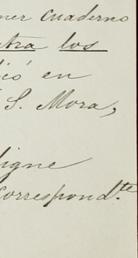 mer cuaderno
tra los
ió en
S. Mora,
digne
correspond.te